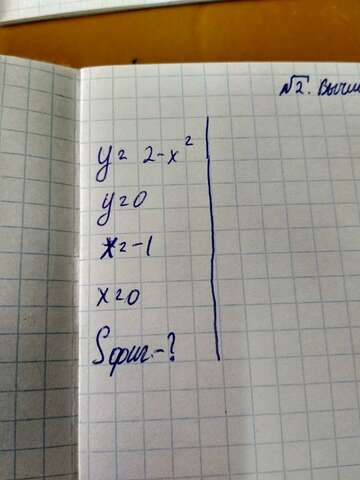 №2. Вычи
y = 2-x²
y=0
x=-1
x=0
Sфиг.-?